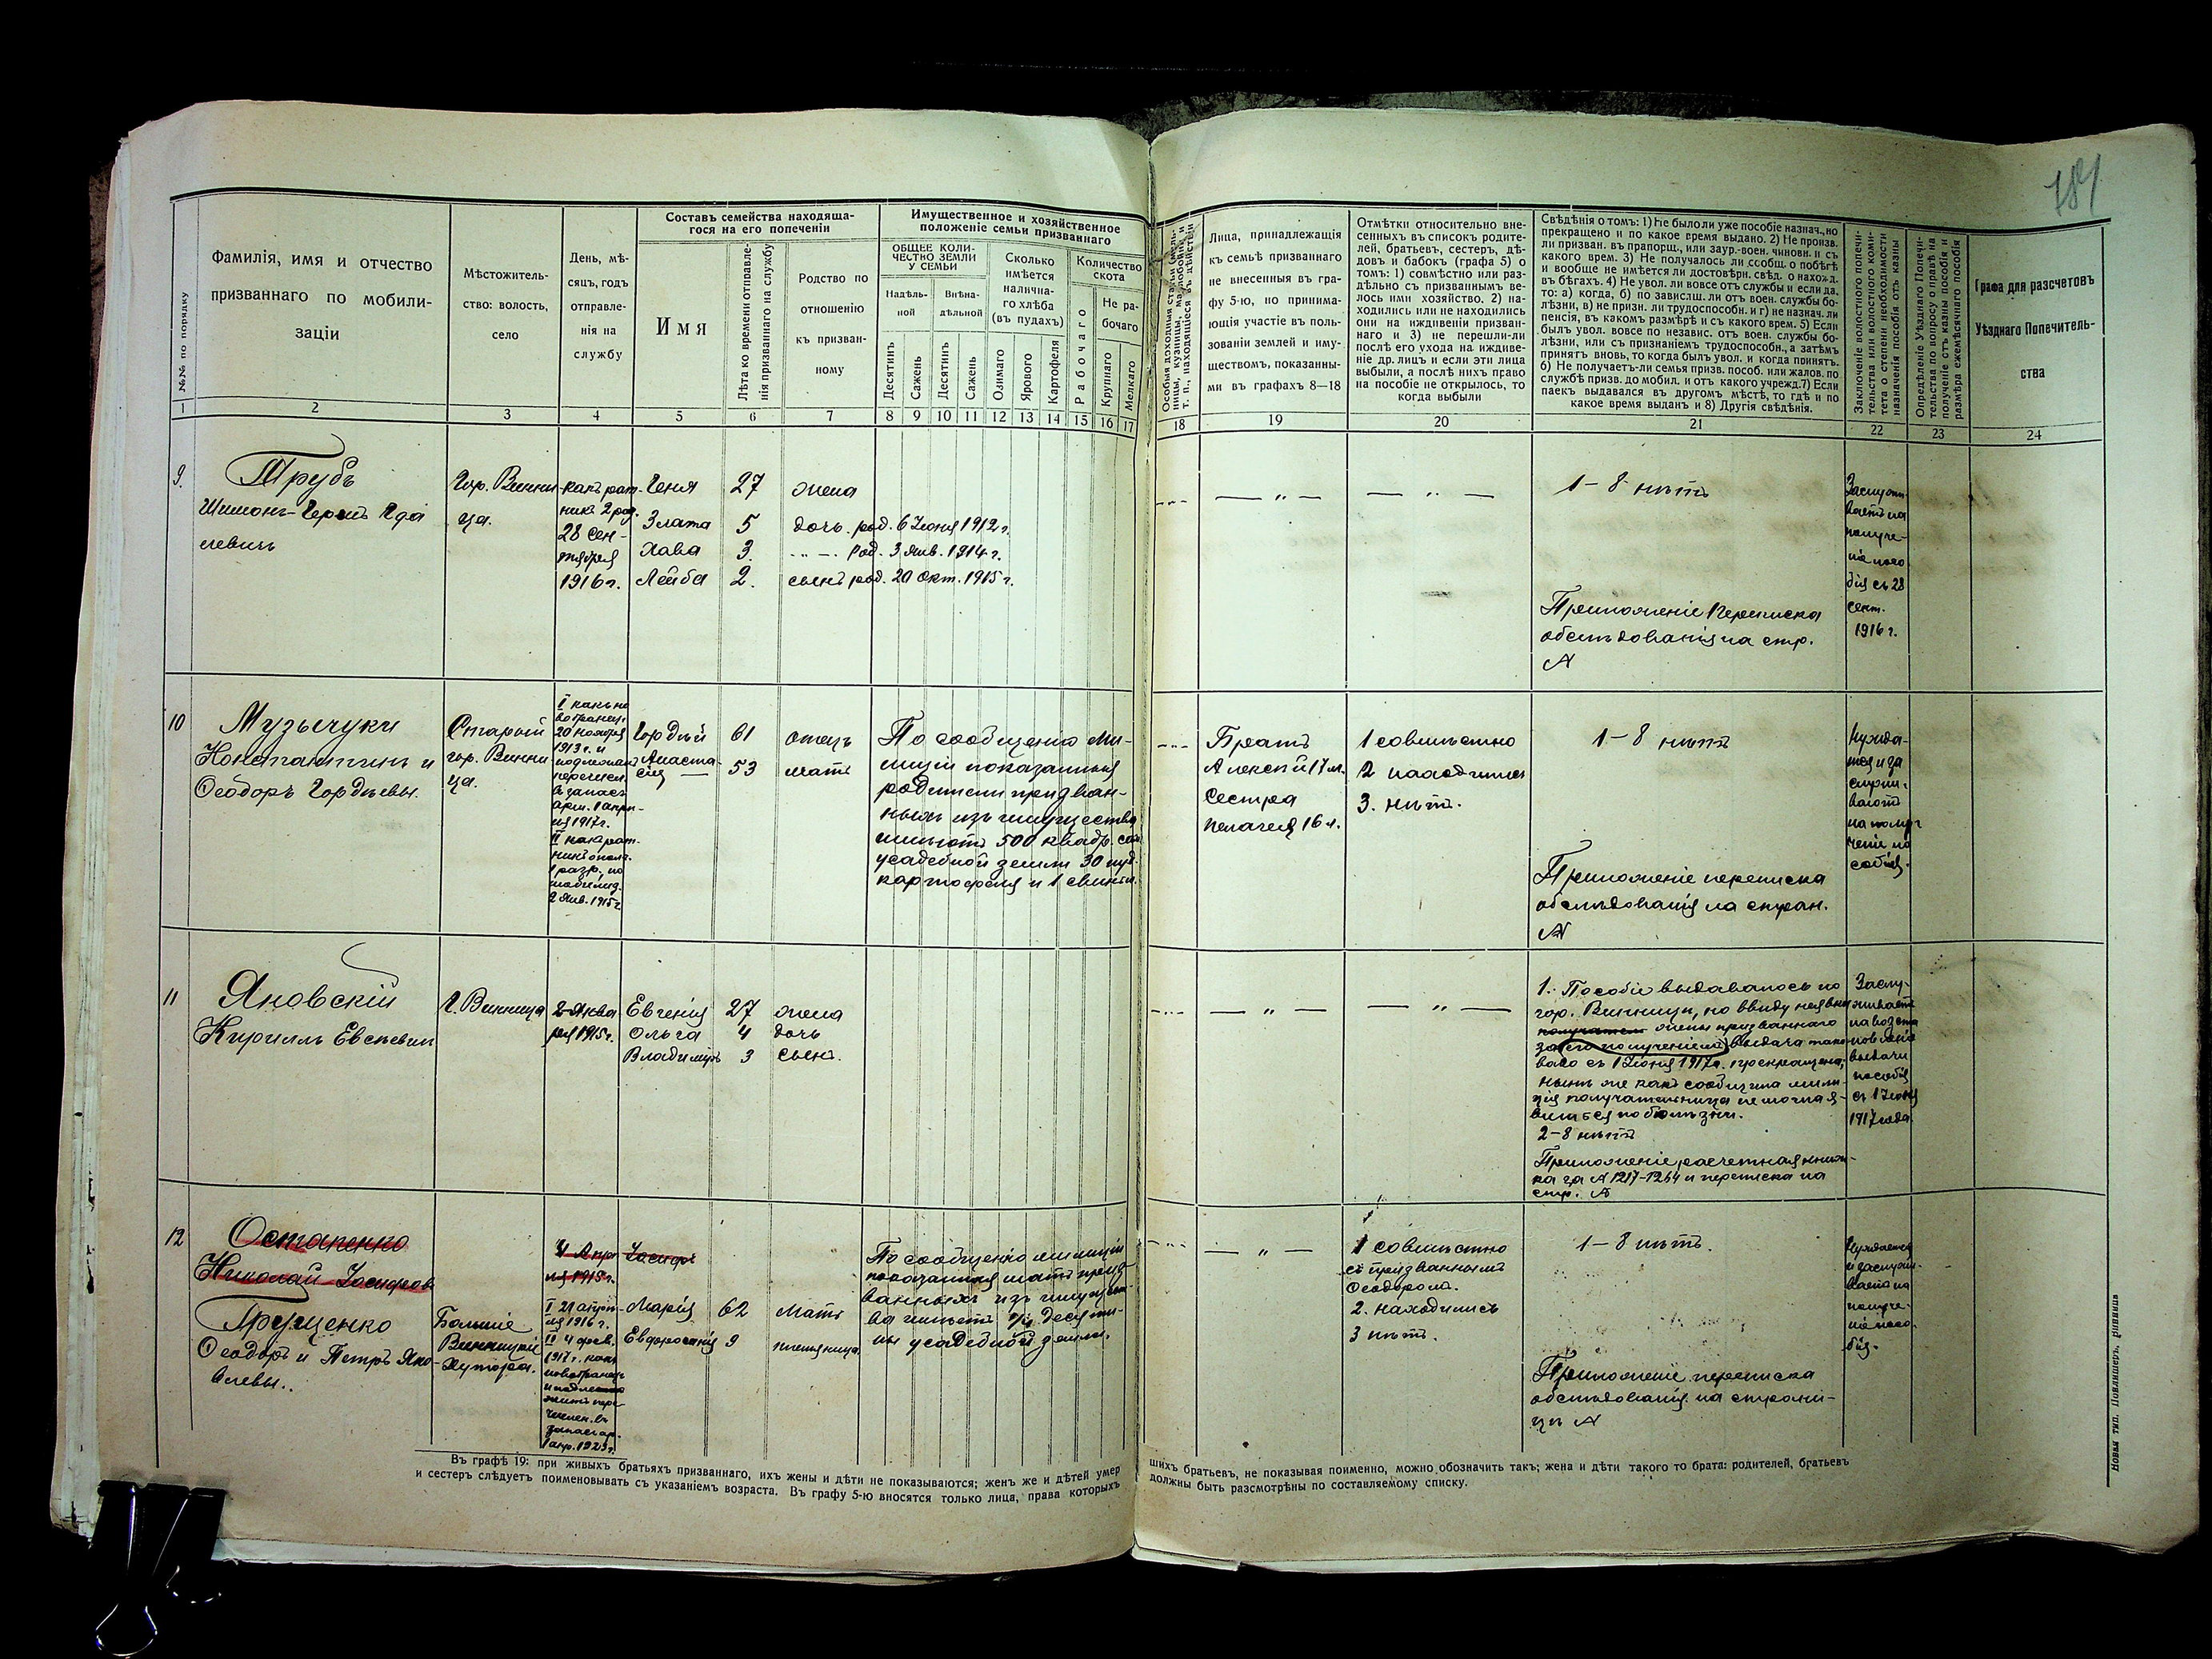 781
Составъ семейства находяща-
гося на его попеченіи
Имущественное и хозяйственное
положеніе семьи призваннаго
№№ по порядку
Фамилія, имя и отчество
призваннаго по мобили-
заціи
Мѣстожитель-
ство: волость,
село
День, мѣ-
сяцъ, годъ
отправле-
нія на
службу
Имя
Лѣта ко времени отправле-
нія призваннаго на службу
Родство по
отношенію
къ призван-
ному
ОБЩЕЕ КОЛИ-
ЧЕСТВО ЗЕМЛИ
У СЕМЬИ
Надѣль-
ной
Внѣна-
дѣльной
Десятинъ
Сажень
Десятинъ
Сажень
Сколько
имѣется
налична-
го хлѣба
(въ пудахъ)
Озимаго
Ярового
Картофеля
Количество
скота
Рабочаго
Не ра-
бочаго
Крупнаго
Мелкаго
1 2 3 4 5 6 7 8 9 10 11 12 13 14 15 16 17
Лица, принадлежащія
къ семьѣ призваннаго
не внесенныя въ гра-
фу 5-ю, но принима-
ющія участіе въ поль-
зованіи землей и иму-
ществомъ, показанны-
ми въ графахъ 8—18
Отмѣтки относительно вне-
сенныхъ въ списокъ родите-
лей, братьевъ, сестеръ, дѣ-
довъ и бабокъ (графа 5) о
томъ: 1) совмѣстно или раз-
дѣльно съ призваннымъ ве-
лось ими хозяйство. 2) на-
ходились или не находились
они на иждивеніи призван-
наго и 3) не перешли-ли
послѣ его ухода на иждиве-
ніе др. лицъ и если эти лица
выбыли, а послѣ нихъ право
на пособіе не открылось, то
когда выбыли
Свѣдѣнія о томъ: 1) Не было ли уже пособіе назнач., но
прекращено и по какое время выдано. 2) Не произв.
ли призван. въ прапорщ., или заур.-воен. чиновн. и съ
какого врем. 3) Не получалось ли сообщ. о побѣгѣ
и вообще не имѣется ли достовѣрн. свѣд. о нахожд.
въ бѣгахъ. 4) Не увол. ли вовсе отъ службы и если да,
то: а) когда, б) по зависящ. ли отъ воен. службы бо-
лѣзни, в) не призн. ли трудоспособн. и г) не назнач. ли
пенсія, въ какомъ размѣрѣ и съ какого врем. 5) Если
былъ увол. вовсе по независ. отъ воен. службы бо-
лѣзни, или съ признаніемъ трудоспособн., а затѣмъ
принятъ вновь, то когда былъ увол. и когда принятъ.
6) Не получаетъ-ли семья призв. пособ. или жалов. по
службѣ призв. до мобил. и отъ какого учрежд. 7) Если
паекъ выдавался въ другомъ мѣстѣ, то гдѣ и по
какое время выданъ и 8) Другія свѣдѣнія.
Заключеніе волостного попечи-
тельства или волостного коми-
тета о степени необходимости
назначенія пособія отъ казны
Опредѣленіе Уѣзднаго Попечи-
тельства по вопросу о правѣ на
полученіе отъ казны пособія и
размѣра ежемѣсячнаго пособія
Графа для разсчетовъ
Уѣзднаго Попечитель-
ства
18 19 20 21 22 23 24
9.
Трубъ
Шимонъ-Гершъ
Гор. Винни-
ца.
какъ рат-
никъ 2 раз.
28 Сен-
тября
1916 г.
Геня 27 жена
Злата 5 дочь род. 6 Іюня 1912 г.
Хава 3. „ — род. 3 Янв. 1914 г.
Лейба 2. сынъ род. 20 Окт. 1915 г.
— „ — — „ —
1-8 нѣтъ
Приложеніе Переписка
обслѣдованія на стр.
№
Заслужи-
ваетъ на
получе-
ніе посо-
бія съ 28
сент.
1916 г.
10
Музычуки
Константинъ и
Ѳеодоръ Гордѣевы.
Старый
гор. Винни
ца.
I какъ но
вобранец.
20 ноября
1913 г. и
перечисл.
въ запасъ
арм. 1 апрѣ-
ля 1917 г.
II какъ рат-
никъ опол.
1 разр. по
мобилиз.
2 Янв. 1915 г
Гордѣй 61 отецъ
Анаста-
сія — 53 мать
По сообщенію Ми-
лиціи показанныя
родители призван-
ныхъ изъ имущества
имѣютъ 500 квадр. саж
усадебной земли 30 пуд.
картофеля и 1 свинью.
Братъ
Алексѣй 17 л.
Сестра
Пелагея 16 л.
1 совмѣстно
2 находились
3. нѣтъ.
1-8 нѣтъ
Приложеніе переписка
обслѣдованія на стран.
№
Нужда-
тся и за
служи-
ваютъ
на полу-
ченіе по
собія.
11
Яновскій
Кириллъ Евсѣевич
Г. Винница
2 Янва
ря 1915 г.
Евгенія 27 жена
Ольга 4 дочь
Владиміръ 3 сынъ.
— „ — — „ —
1. Пособіе выдавалось по
гор. Винницѣ, но ввиду неявки
жены призваннаго
за его полученіемъ выдача тако
вого съ 1 Іюня 1917 г. прекращена,
нынѣ же какъ сообщила мили-
ція получательница не могла я-
виться по болѣзни.
2-8 нѣтъ
Приложеніе расчетная книж-
ка за № 1217-1264 и переписка на
стр. №
Заслу-
живаетъ
на возста
новленіе
выдачи
пособія
съ 1 Іюня
1917 года
12
Остапенко
Николай Іосифов
4 Апрѣ
ля 1915 г.
Іосифъ
Грущенко
Ѳеодоръ и Петръ Яко-
влевы..
Большіе
Винницкіе
Хутора.
I 21 апрѣ-
ля 1916 г.
II 4 фев.
1917 г. какъ
новобранецъ
запас ар.
1 апр. 1923 г.
Марія 62 Мать
Евфросинія 9 племяница
По сообщенію милиціи
показанная мать приз-
ванныхъ изъ имущест-
ва имѣетъ десяти-
ны усадебной земли.
— „ —
1 совмѣстно
съ призваннымъ
Ѳеодоромъ.
2. находились
3 нѣтъ.
1-8 нѣтъ.
Приложеніе переписка
обслѣдованія на страни-
цѣ №
Нуждается
и заслужи-
ваетъ на
получе-
ніе посо-
бія.
Въ графѣ 19: при живыхъ братьяхъ призваннаго, ихъ жены и дѣти не показываются; женъ же и дѣтей умер
шихъ братьевъ, не показывая поименно, можно обозначить такъ; жена и дѣти такого то брата: родителей, братьевъ
и сестеръ слѣдуетъ поименовывать съ указаніемъ возраста. Въ графу 5-ю вносятся только лица, права которыхъ
должны быть разсмотрѣны по составляемому списку.